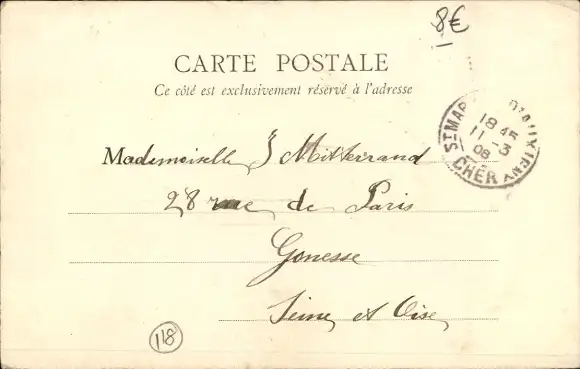 8€
CARTE POSTALE
Ce côté est exclusivement réservé à l'adresse
ST MAR D'AUXIGNY
18 45
11 - 3
08
CHER
Mademoiselle J Mitterrand
28 rue de Paris
Gonesse
Seine et Oise
118